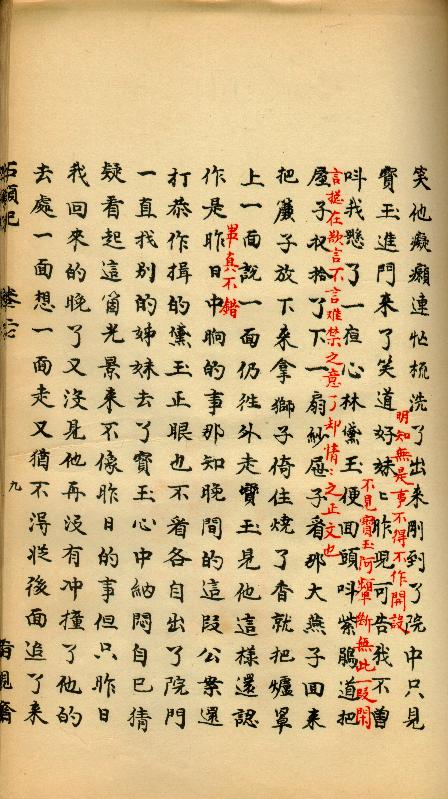 笑他癡癲連忙梳洗了出來剛到了院中只見
寳玉進門來了笑道好妹〻昨児可告我不曽
明知無是事不得不作開談
叫我懸了一夜心林黛玉便囬頭叫紫鵑道把
不見寳玉阿顰断無此一叚閑
言揔在欲言不言難禁之意了却情〻之正文也
屋子収拾了下一扇紗屉子看那大燕子囬来
把簾子放下来拿獅子倚住燒了香就把爐罩
上一面說一面仍徃外走寳玉見他這樣還認
作是昨日中晌的事那知晚間的這叚公案還
畢真不錯
打恭作揖的黛玉正眼也不看各自出了院門
一直找别的姊妹去了寳玉心中納悶自己猜
疑看起這個光景来不像昨日的事但只昨日
我回來的晚了又没見他再没有冲撞了他的
去處一面想一面走又猶不得從後面追了来
石頭記
九